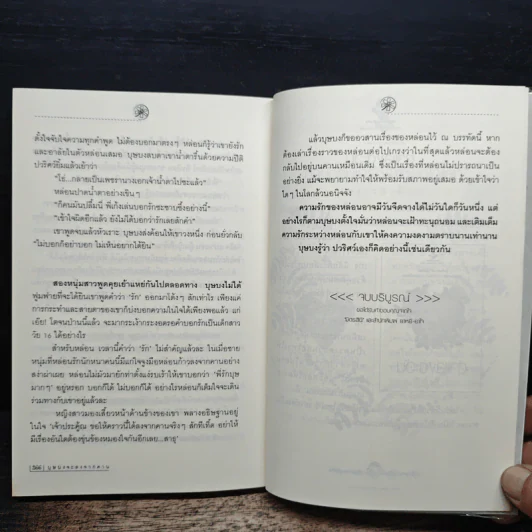 ตั้งใจจับใจความทุกคำพูด ไม่ต้องบอกมาตรงๆ หล่อนก็รู้ว่าเขายังรัก
และอาลัยในตัวหล่อนเสมอ บุษบงสบตาเขาน้ำตารื้นด้วยความปีติ
ปริศวิ์ยิ้มแล้วเย้าว่า
"โธ่...กลายเป็นเพชรานางเอกเจ้าน้ำตาไปซะแล้ว"
หล่อนปาดน้ำตาอย่างเขินๆ
"ก็คนมันปลื้มนี่ พี่เก้งเล่นบอกรักซะซาบซึ้งอย่างนี้"
"เข้าใจผิดอีกแล้ว ยังไม่ได้บอกว่ารักเลยสักคำ"
เขาพูดจบแล้วหัวเราะ บุษบงส่งค้อนให้เขาวงหนึ่ง ก่อนย้ำกลับ
"ไม่บอกก็อย่าบอก ไม่เห็นอยากได้ยิน"
สองหนุ่มสาวพูดคุยเย้าแหย่กันไปตลอดทาง บุษบงไม่ได้
ฟูมฟายที่จะได้ยินเขาพูดคำว่า 'รัก' ออกมาได้งๆ สักเท่าไร เพียงแค่
การกระทำและสายตาของเขาก็บ่งบอกความในใจได้เพียงพอแล้ว แก่
เอ๊ย! โตจนป่านนี้แล้ว จะมากระเง้ากระงอดรอคำบอกรักเป็นเด็กสาว
วัย 16 ได้อย่างไร
สำหรับหล่อน เวลานี้คำว่า 'รัก' ไม่สำคัญแล้วละ ในเมื่อชาย
หนุ่มที่หล่อนรักนักหนาคนนี้มีแก่ใจจูงมือหล่อนก้าวลงจากคานอย่าง
สง่างามเลย หล่อนไม่มัวมายักท่าตั้งแง่รบเร้าให้เขาบอกว่า 'พี่รักบุษ
มากๆ' อยู่หรอก บอกก็ได้ ไม่บอกก็ได้ อย่างไรหล่อนก็เต็มใจจะเดิน
ร่วมทางกับเขาอยู่แล้วละ
หญิงสาวมองเสี้ยวหน้าด้านข้างของเขา พลางอธิษฐานอยู่
ในใจ 'เจ้าประคู้ณ ขอให้คราวนี้ได้ลงจากคานจริงๆ สักทีเถิด อย่าให้
มีเรื่องอันใดต้องขุ่นข้องหมองใจกันอีกเลย...สาธุ'
แล้วบุษบงก็ขออวสานเรื่องของหล่อนไว้ ณ บรรทัดนี้ หาก
ต้องเล่าเรื่องราวของหล่อนต่อไปเกรงว่าในที่สุดแล้วหล่อนจะต้อง
กลับไปอยู่บนคานเหมือนเดิม ซึ่งเป็นเรื่องที่หล่อนไม่ปรารถนาเป็น
อย่างยิ่ง แม้จะพยายามทำใจให้พร้อมรับสภาพอยู่เสมอ ด้วยเข้าใจว่า
ใดๆ ในโลกล้วนอนิจจัง
ความรักของหล่อนอาจมีวันจืดจางได้ไม่วันใดก็วันหนึ่ง แต่
อย่างไรก็ตามบุษบงตั้งใจมั่นว่าหล่อนจะเฝ้าทะนุถนอม และเติมเต็ม
ความรักระหว่างหล่อนกับเขาให้คงความงดงามตราบนานเท่านาน
บุษบงรู้ว่า ปวริศว์เองก็คิดอย่างนี้เช่นเดียวกัน
<<< จบบริบูรณ์ >>>